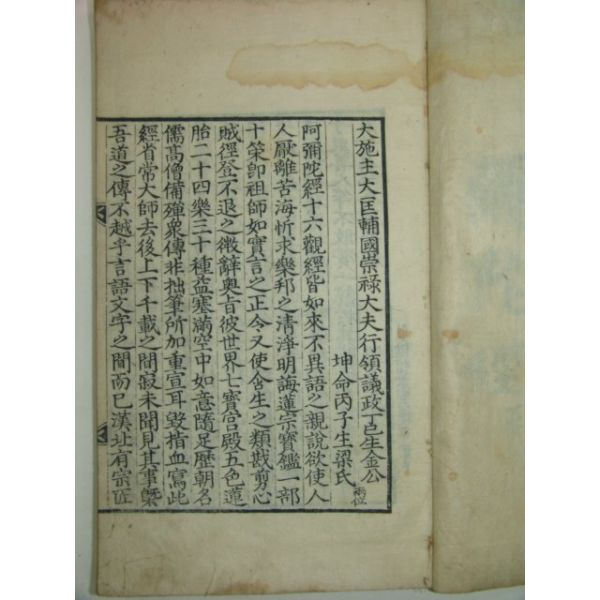 大施主大匡輔國崇祿大夫行領議政丁巳生金公
坤命丙子生梁氏 兩位
阿彌陀經十六觀經皆如來不異語之親說欲使人
人厭離苦海忻求樂邦之淸淨明誨蓮宗寶鑑一部
十策卽祖師如實言之正令又使含生之類戡剪心
賊徑登不退之徵辭奧旨彼世界七寶宮殿五色蓮
胎二十四樂三十種益塞滿空中如意隨足歷朝名
儒高僧備殫衆傳非拙筆所加重宣耳毁指血寫此
經省常大師去後上下千載之間寂未聞見其事槩
吾道之傳不越乎言語文字之間而已漢址有宗匠